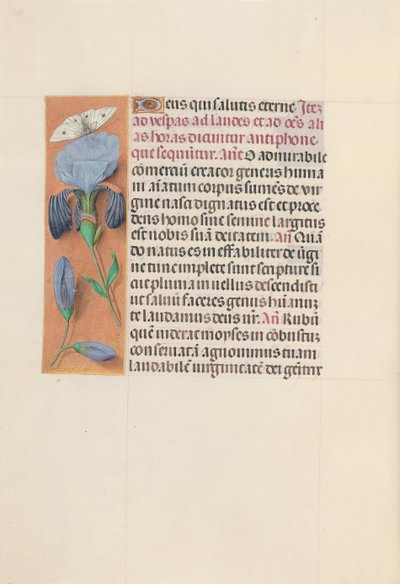 Deus qui salutis eterne. Itē
ad vespas ad laudes et ad oēs ali
as horas dicuntur antiphone
que sequūtur. Añ O admirabile
cōmerciū creator generis huma
ni aīatum corpus sumēs de vir
gine nasci dignatus est et proce
dens homo sine semine largitus
est nobis suā deitatem. Añ Quā
do natus es in effabiliter de v̄gi
ne tunc implete sunt scripture si
cut pluuia in vellus descendisti
vt saluū faceres genus hūanū
te laudamus deus nr̄. Añ Rubū
quē viderat moyses in cōbustū
conseruatā agnouimus tuam
laudabilē virginitatē dei genitrix